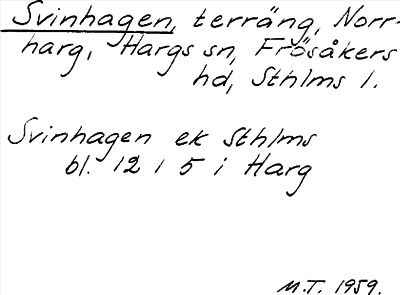 Svinhagen, terräng, Norr-
harg, Hargs sn, Frösåkers
hd, Sthlms l.
Svinhagen ek Sthlms
bl. 12 i 5 i Harg
M.T. 1959.